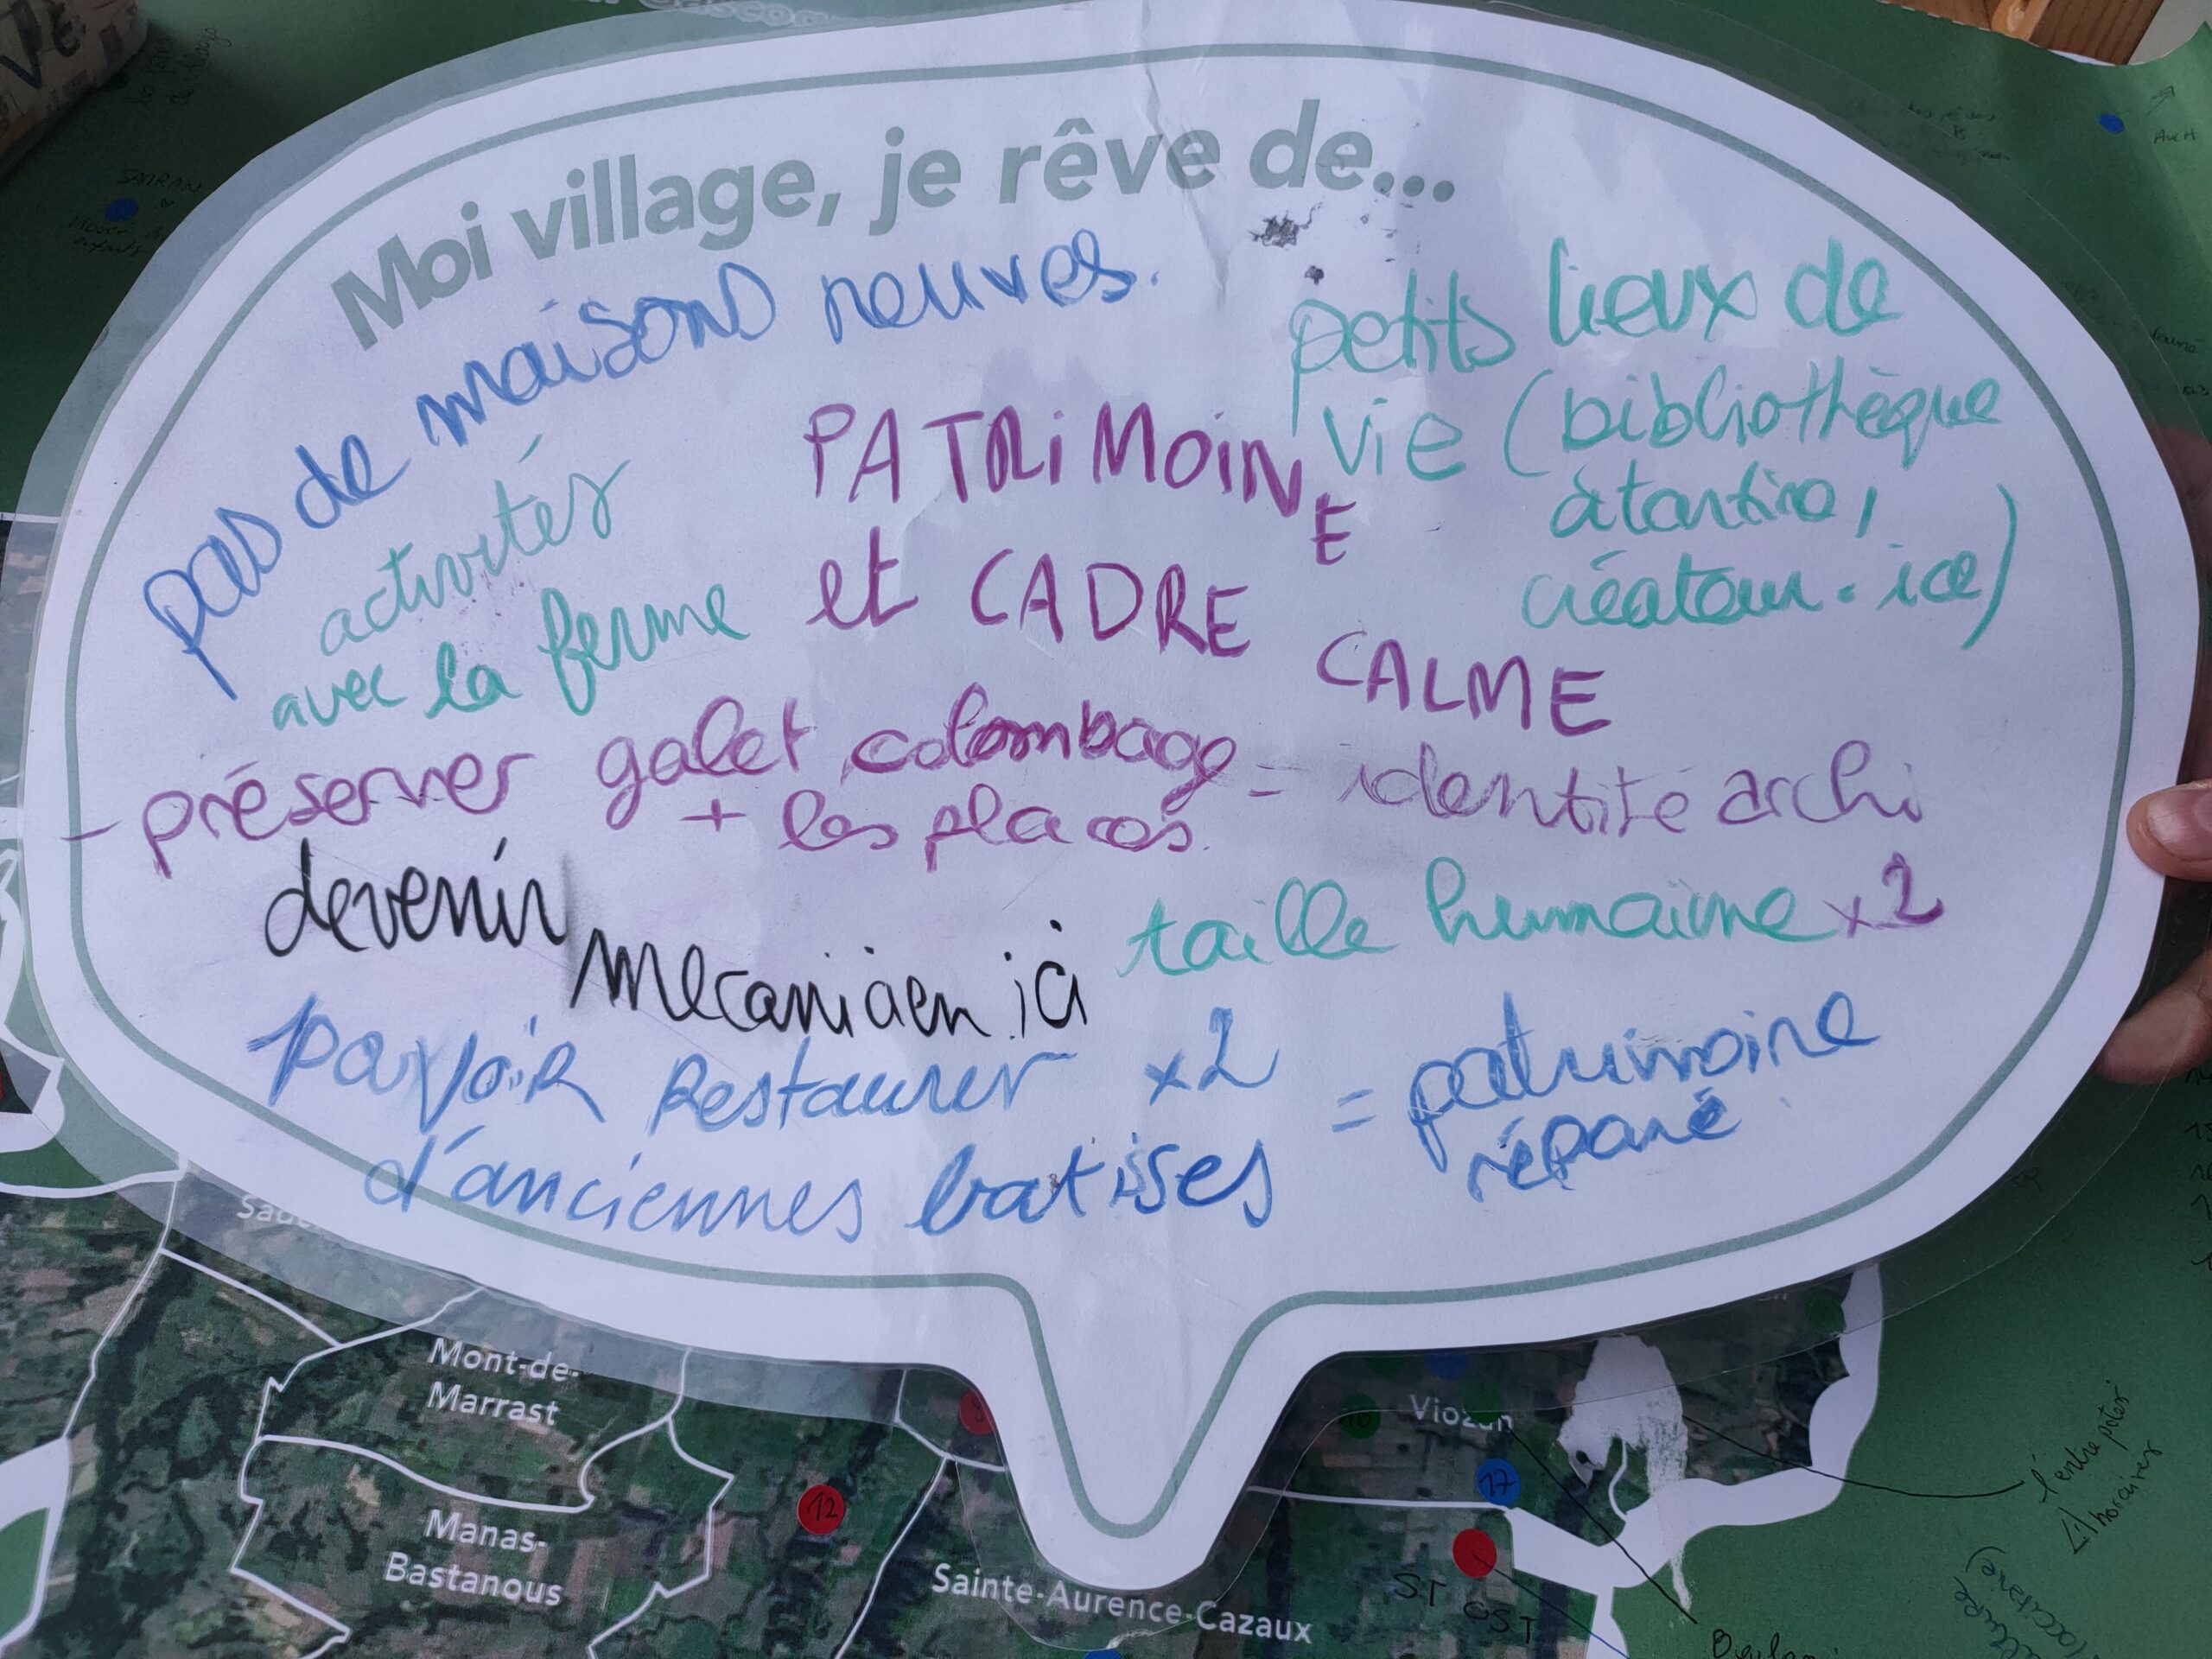 Moi village, je rêve de...
pas de maisons neuves.
petits lieux de
vie (bibliothèque
créateur.ice)
activités
avec la ferme
PATRIMOINE
et CADRE
CALME
- préserver galet colombage = identité archi
+ les places.
devenir
mecanicien ici
taille humaine x2
pouvoir Restaurer x2
d'anciennes batisses
= patrimoine
réparé
Mont-de-
Marrast
Manas-
Bastanous
Sainte-Aurence-Cazaux
Viozan
12
17
ST
OST
l'entrepotes
horaires